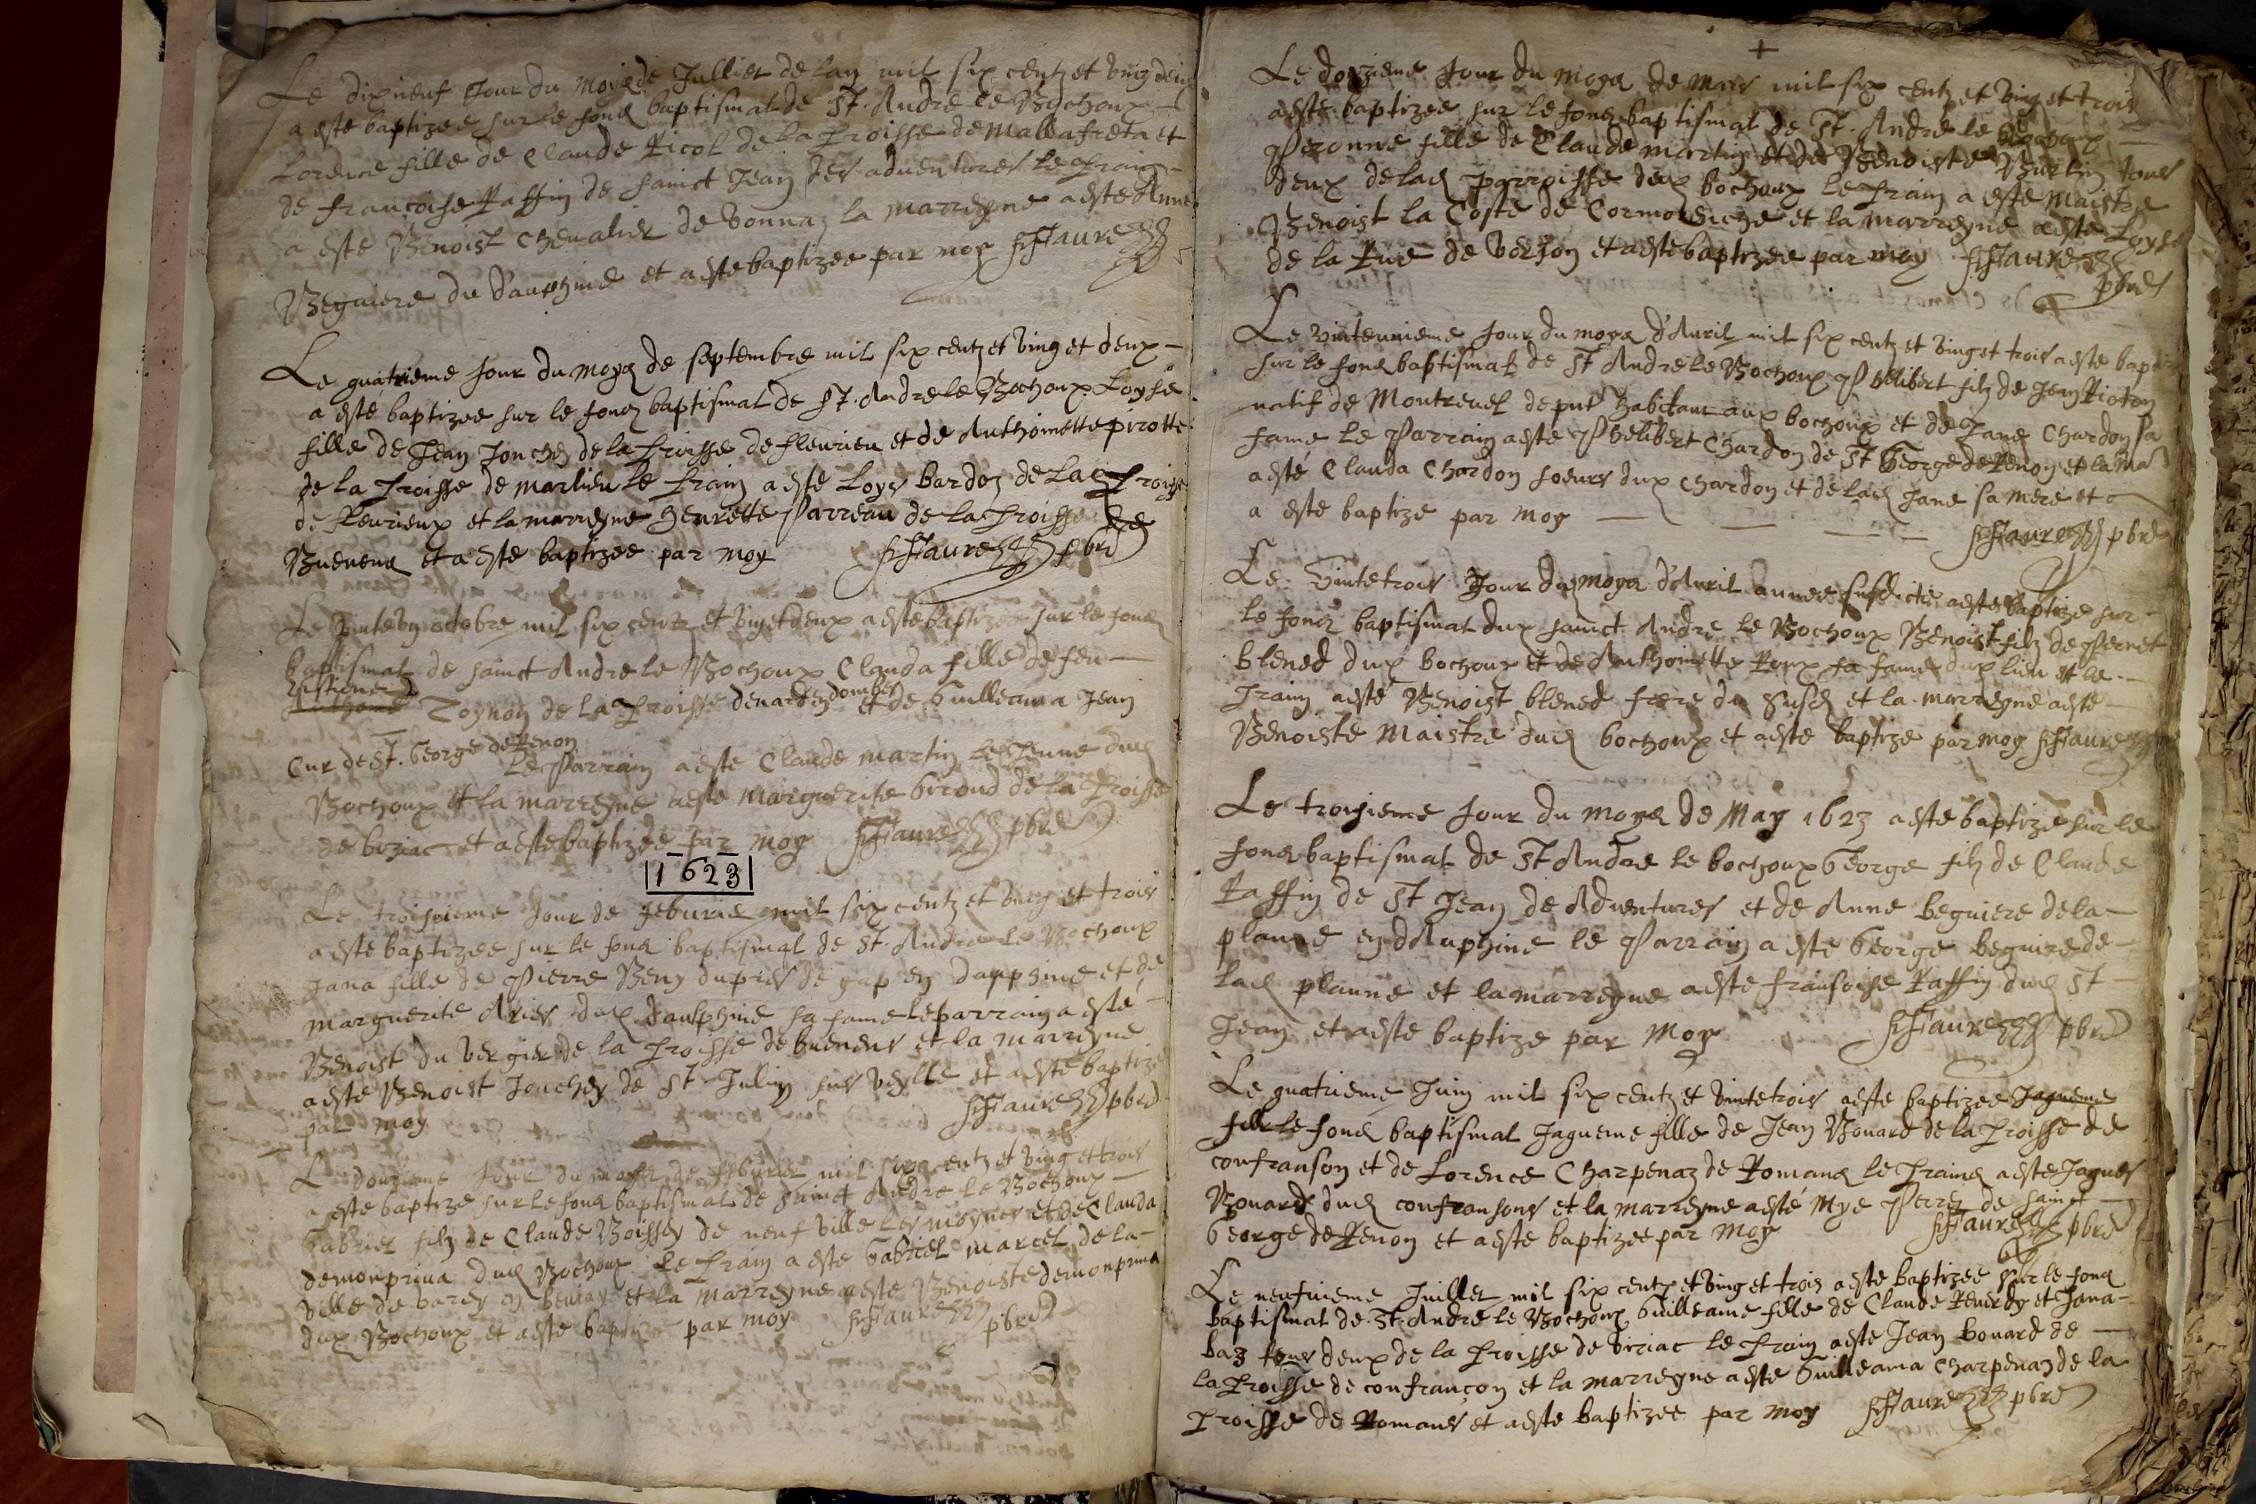 Le dix neuf Jour du moys de Julliet de lan mil six centz et ving deux
a este baptizee sur le fons baptismal de St. Andre le Bochoux
Lorence fille de Claude Ricol de la Proisse de Mallafreta et
de francoise Raffin de sainct Jean des adventures le Prain
a este Benoist Chevalier de Vonnaz la marreyne a este Anne
Beguiere du Dauphine et a este baptizee par moy Faure
Le quatrieme Jour du moys de septembre mil six centz et ving et deux
a esté baptizee sur le fons baptismal de St. Andre le Bochoux Loyse
fille de Jean Jonchey de la Proisse de fleurieu et de Anthoinette pirotte
de la Proisse de marlieu le Prain a esté Loys bardoz de lad Proisse
de fleurieux et la marreyne Henrette Parreau de la Proisse de
Buenens et a este baptizee par moy Faure pbre
Le vinte un octobre mil six centz et ving et deux a este baptizee sur le fons
baptismal de sainct Andre le Bochoux Clauda fille de feu
Toynon de la Proisse et de Guilleama Jean
Cur de St. George de Renon
Le Parrain a este Claude martin le Jeune dud
Bochoux et la marreyne a este marguerite Giroud de la Proisse
de biziac et a este baptizee par moy Faure pbre
1623
Le troisieme Jour de feburier mil six centz et ving et trois
a este baptizee sur le fons baptismal de St. Andre le Bochoux
Jana fille de Pierre Beny dupres de gap en dauphine et de
marguerite Aries dud dauphine sa fame le parrain a esté
Benoist du Vergier de la Proisse de buenens et la marreyne
a este Benoist Jonchey de St. Julin sur Veylle et a este baptize
par moy Faure pbre
Le douzieme Jour du moys de feburier mil six centz et ving et trois
a este baptize sur le fons baptismal de sainct Andre le Bochoux
Gabriel filz de Claude Boissey de neuf ville les moynes et de Clauda
demonprina dud Bochoux le Prain a este Gabriel marcel de la
ville de en et la marreyne a este Benoiste demonprina
dux Bochoux et a este baptize par moy Faure pbre
Le douzieme Jour du moys de mars mil six centz et ving et trois
a este baptizee sur le fons baptismal de St. Andre le Bochoux
Peronne fille de Claude martin et de Benoiste Burtin tous
deux de lad parroisse dux bochoux le Prain a este Maistre
Benoist la Coste de Cormoreiche et la marreyne a este Loyse
de la Rue de et a este baptizee par moy Faure
pbre
Le vinteunieme Jour du moys d'Auril mil six centz et ving et trois a este bapti
sur le fons baptismal de St Andre le Bochoux Phelibert filz de Jean Piotay
natif de Montrevel deput habitant aux bochoux et de Jane Chardon sa
fame le Parrain a este Phelibert Chardon de St George de Renon et la ma
a esté Clauda Chardon soeurs dux Chardon et de lad Jane sa mere et
a este baptize par moy
Faure pbre
Le vinte trois Jour du moys d'Auril annee susdicte a este baptize sur
le fons baptismal dux sainct Andre le Bochoux Benoist filz de Pernet
blened dux bochoux et de Anthoinette Roux sa fame dux lieu et le
Prain a esté Benoist blened frere du susd et la marreyne a este
Benoiste Maistre dud bochoux et a esté baptize par moy Faure
Le troisieme Jour du moys de May 1623 a este baptize sur le
fons baptismal de St Andre le bochoux George filz de Claude
Raffin de St Jean de Adventures et de Anne beguiere de la
planne en dAuphine le Parrain a este George beguire de
lad planne et la marreyne a este fransoise Raffin dud St
Jean et a este baptize par Moy Faure pbre
Le quatrieme Juin mil six centz et vinte trois a este baptizee Jaqueme
sur le fons baptismal Jaqueme fille de Jean Bouard de la Proisse de
confranson et de Lorence Charpenaz de Romans le Prains a este Jaques
Bouard dud confransons et la marreyne a esté Mye Perrez de sainct
George de Renon et a este baptizee par Moy Faure pbre
Le neufuieme Juillet mil six centz et ving et trois a este baptizee sur le fons
baptismal de St. Andre le Bochoux Guilleame fille de Claude Reverdy et Jana
baz tous deux de la Proisse de biziac le Prain a este Jean bouard de
la Proisse de confrancon et la marreyne a este Guilleama Charpenaz de la
Proisse de Romans et a este baptizee par moy Faure pbre